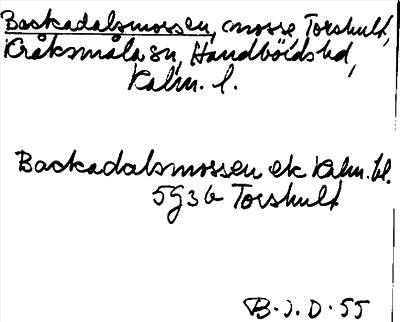 Backadalsmossen, mosse, Torshult,
Kråksmåla sn, Handbörds hd,
Kalm. l.
Backadalsmossen ek Kalm. bl.
5g3b Torshult
B.J.D. 55